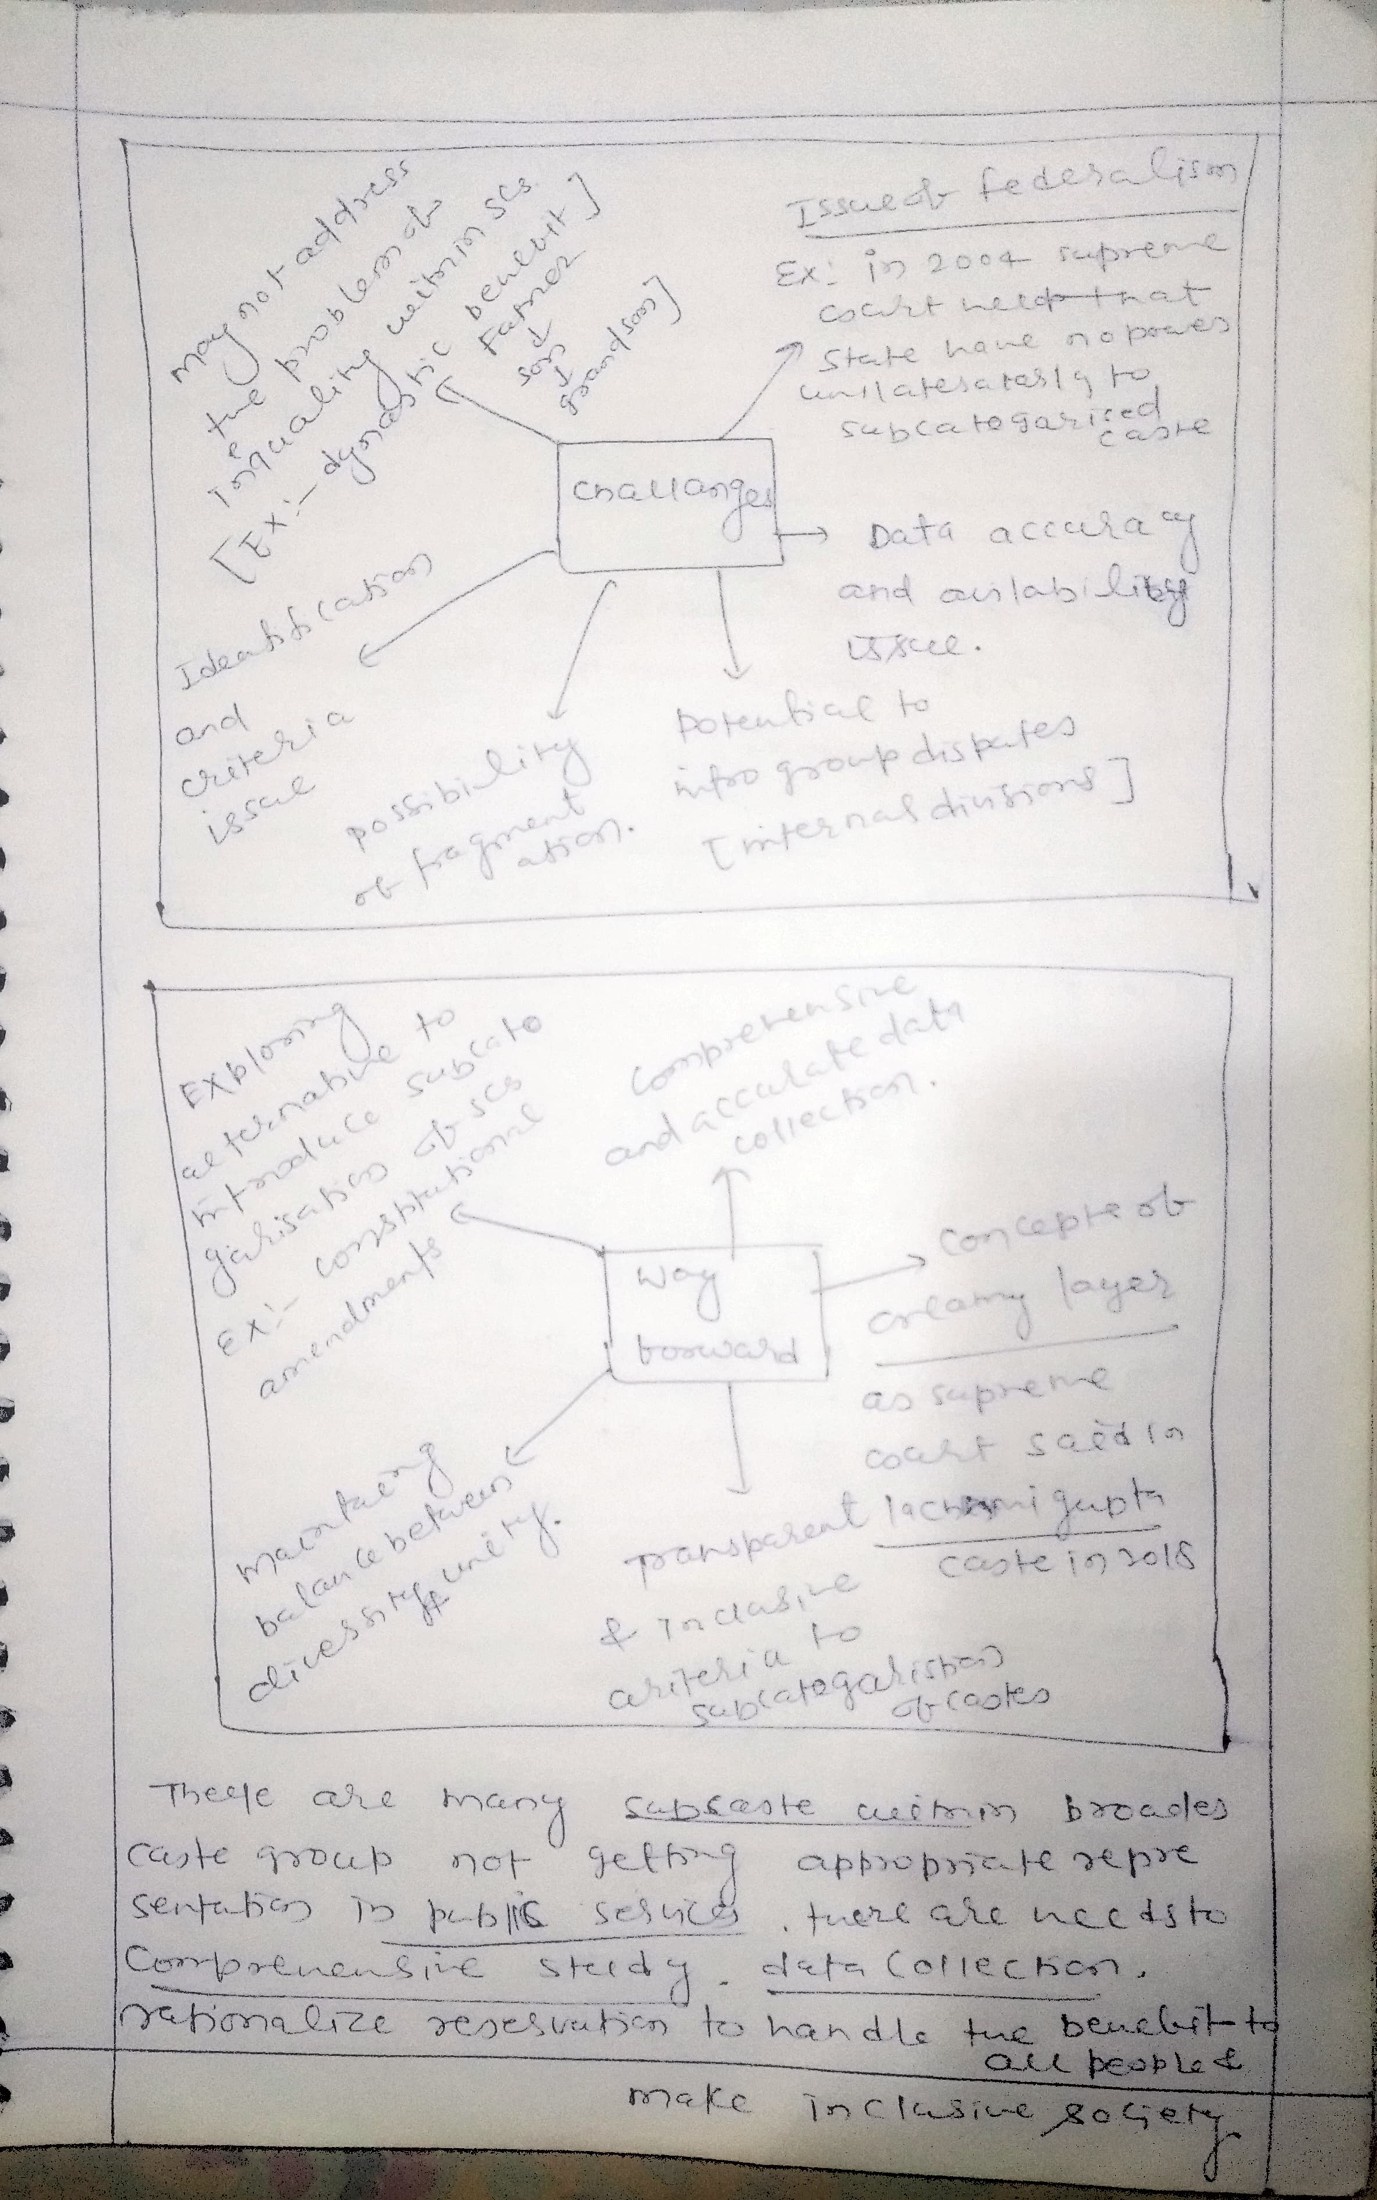 may not address
the problem of
inquality within SCs
[Ex:- dynastic benefit]
Father
↓
son
↓
grandson]
Issue of federalism
Ex: in 2004 supreme
court held that
State have no power
unilaterarly to
subcatogarised
caste
Challanges
→ Data accuracy
and availability
issue.
Identification
and
criteria
issue
possibility
of fragment
ation.
Potential to
intra group disputes
[internal divisions]
Exploring
alternative to
introduce subcato
garisation of SCs
Ex:- constitutional
amendments
Comprehensive
and accurate data
collection.
Way
forward
Concept of
creamy layer
as supreme
court said in
gupta
caste in 2018
maintaing
balance between
diversity & unity.
Transparent
& inclusive
criteria to
subcatogarisation
of castes
There are many subcaste within broader
caste group not getting appropriate repre
sentation in public services. there are needs to
Comprehensive study. data collection.
rationalize reservation to handle the benefit to
all people &
make inclusive society